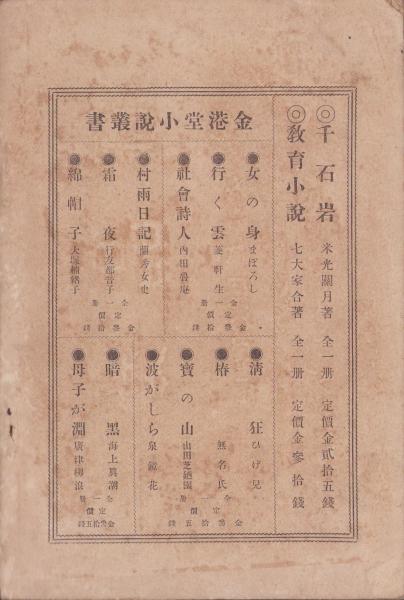 ◎千石岩 米光關月著 全一册 定價金貳拾五錢
◎教育小說 七大家合著 全一册 定價金參拾錢
金港堂小說叢書
●女の身 まぼろし
●行く雲 菱軒生
●社會詩人 內田魯庵
全一册
定價
金參拾錢
●村雨日記 閨秀女史
●霜夜
●綿帽子 大塚楠緒子
全一册
定價
金參拾錢
●淸狂 ひげ兒
●椿 無名氏
●寶の山
●波がしら 泉鏡花
全一册
定價
金參拾五錢
●暗黑 海上異潮
●母子が淵 廣津柳浪
全一册
定價
金參拾五錢